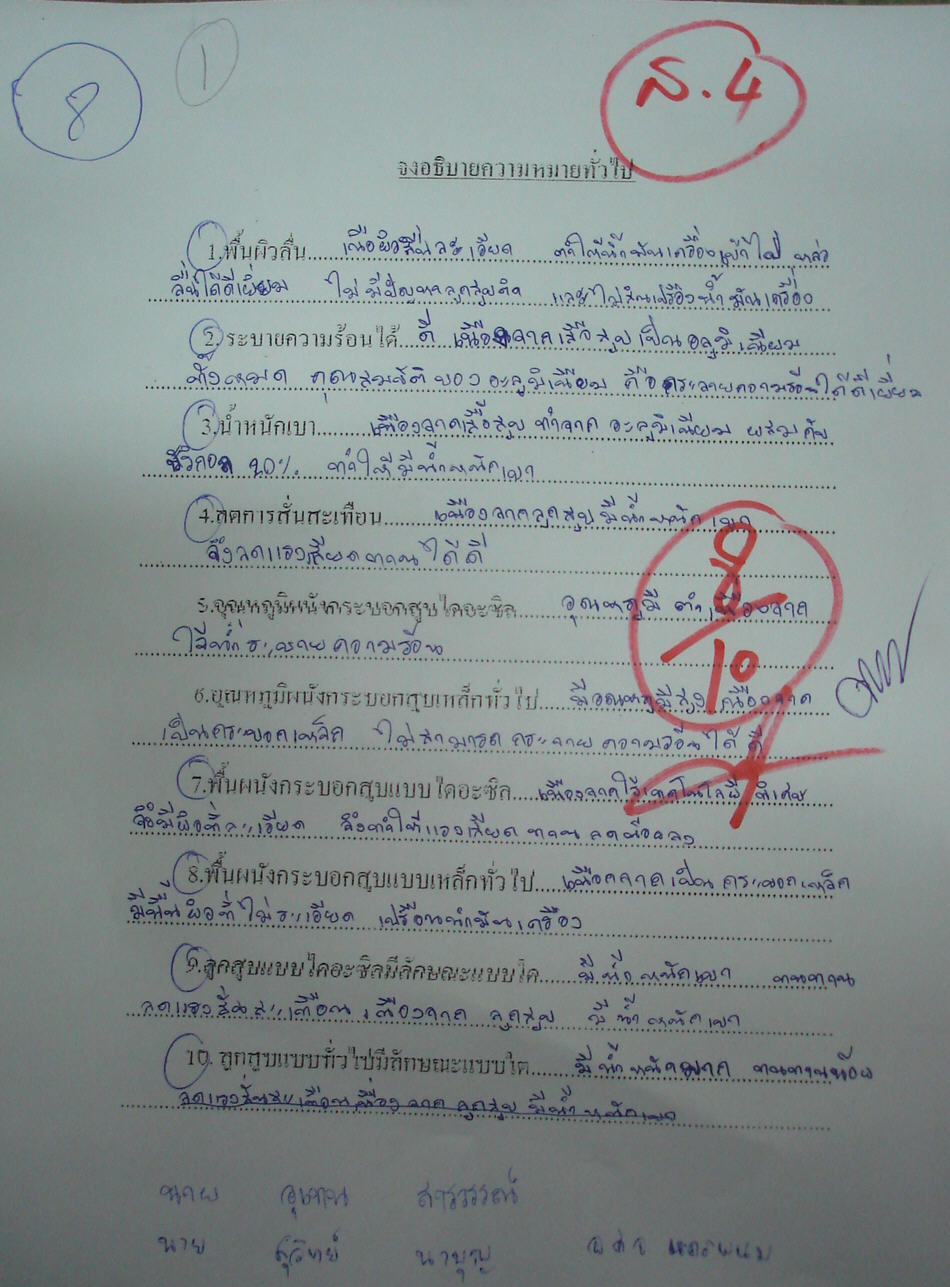 8
1
ส.4
จงอธิบายความหมายทั่วไป
1.พื้นผิวลื่น เนื้อผิวลื่นละเอียด ทำให้น้ำมันเครื่องเข้าไป หล่อ
ลื่นได้ดีเยี่ยม ไม่มีปัญหาลูกสูบติด และไม่สิ้นเปลืองน้ำมันเครื่อง
2.ระบายความร้อนได้ ดี เนื่องจากเสื้อสูบเป็นอลูมิเนียม
ทั้งหมด คุณสมบัติของอะลูมิเนียม คือกระจายความร้อนได้ดีเยี่ยม
3.น้ำหนักเบา เนื่องจากเสื้อสูบ ทำจาก อะลูมิเนียม ผสมกับ
ซิลิกอน 20% ทำให้มีน้ำหนักเบา
4.ลดการสั่นสะเทือน เนื่องจากลูกสูบมีน้ำหนักเบา
จึงลดแรงเสียดทานได้ดี
5.อุณหภูมิผนังกระบอกสูบไดอะซิล อุณหภูมิ ต่ำเนื่องจาก
ระบายความร้อน
8/10
6.อุณหภูมิผนังกระบอกสูบเหล็กทั่วไป มีอุณหภูมิสูง เนื่องจาก
เป็นกระบอกเหล็ก ไม่สามารถกระจายความร้อนได้ดี
7.พื้นผนังกระบอกสูบแบบไดอะซิล เนื่องจากใช้เทคโนโลยี พิเศษ
จึงมีผิวที่ละเอียด จึงทำให้แรงเสียดทานลดน้อยลง
8.พื้นผนังกระบอกสูบแบบเหล็กทั่วไป เนื่องจากเป็นกระบอกเหล็ก
มีพื้นผิวที่ไม่ละเอียด เปลืองน้ำมันเครื่อง
9.ลูกสูบแบบไดอะซิลมีลักษณะแบบใด มีน้ำหนักเบา ทนทาน
ลดแรงสั่นสะเทือน เนื่องจาก ลูกสูบ มีน้ำหนักเบา
10. ลูกสูบแบบทั่วไปมีลักษณะแบบใด มีน้ำหนักมาก ทนทานน้อย
ลดแรงสั่นสะเทือนเนื่องจากลูกสูบมีน้ำหนักเบา
นาย อุเทน สารวรรณ์
นาย สุริทย์ นาบุญ